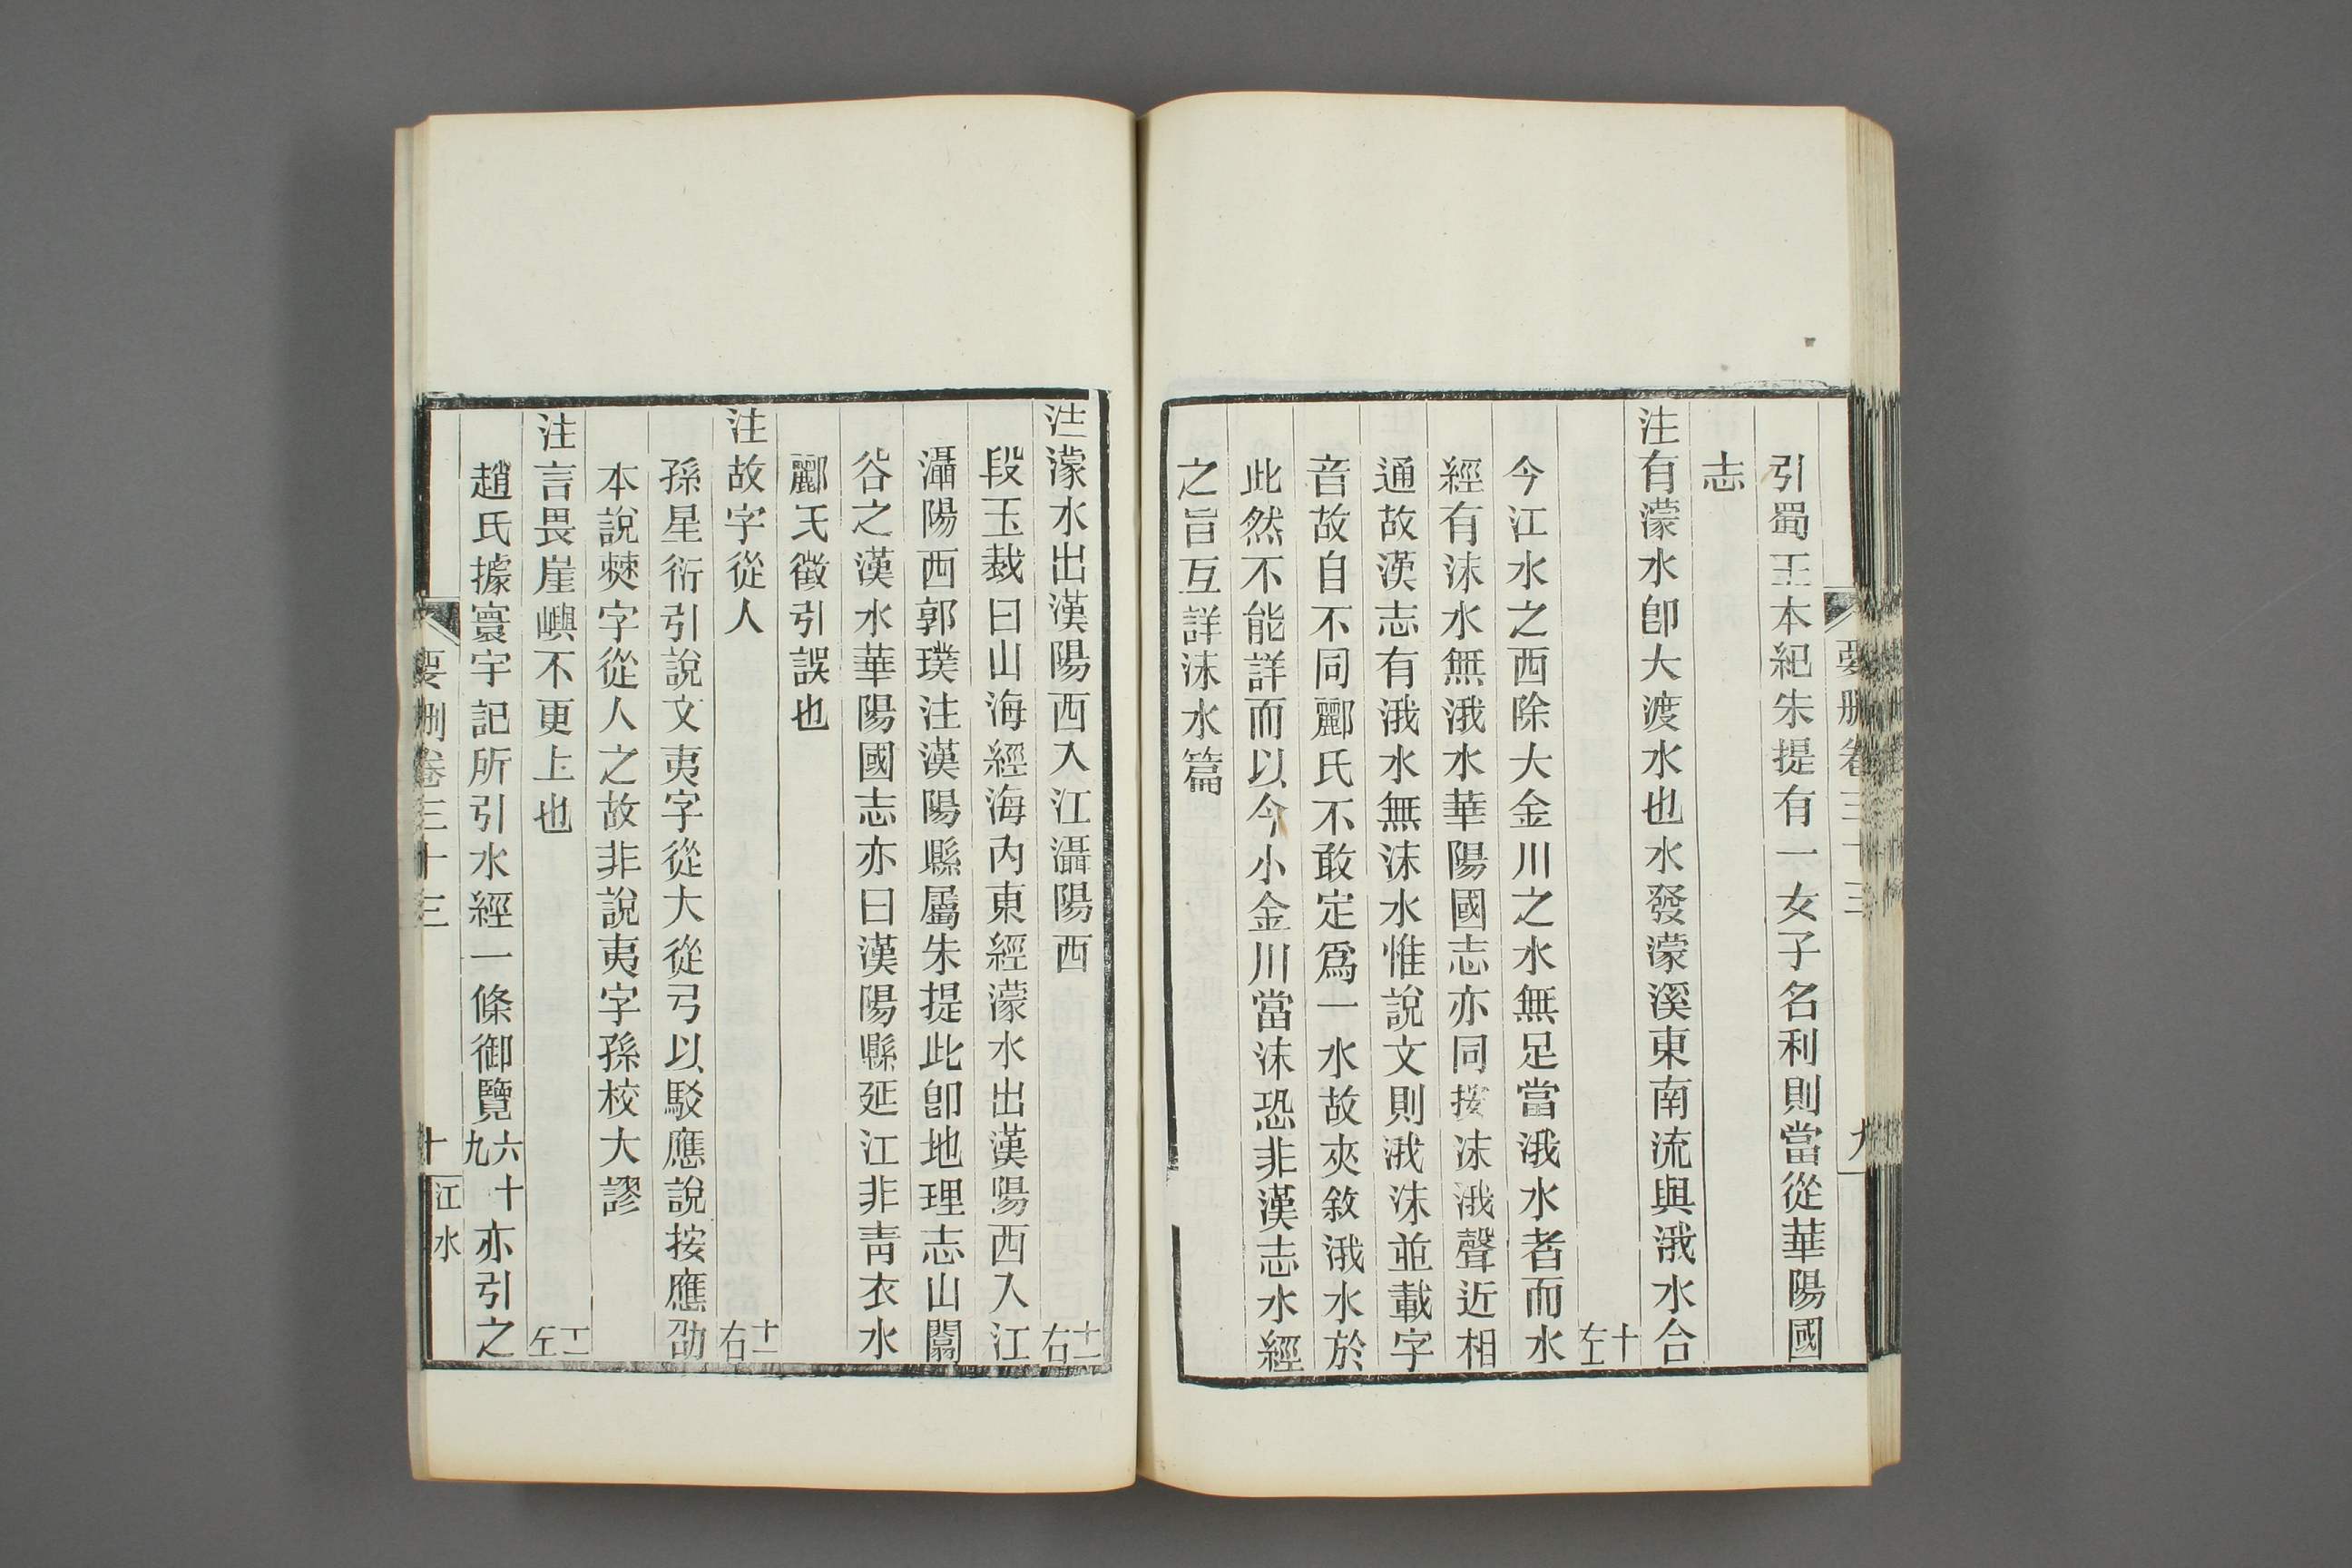 要刪卷三十三
九
引蜀王本紀朱提有一女子名利則當從華陽國
志
注有濛水卽大渡水也水發濛溪東南流與涐水合
十左
今江水之西除大金川之水無足當涐水者而水
經有沬水無涐水華陽國志亦同按沬涐聲近相
通故漢志有涐水無沬水惟說文則涐沬並載字
音故自不同酈氏不敢定爲一水故夾敘涐水於
此然不能詳而以今小金川當沬恐非漢志水經
之旨互詳沬水篇
注濛水出漢陽西入江灄陽西
十一右
段玉裁曰山海經海內東經濛水出漢陽西入江
灄陽西郭璞注漢陽縣屬朱提此卽地理志山闟
谷之漢水華陽國志亦曰漢陽縣延江非靑衣水
酈氏徵引誤也
注故字從人
十一右
孫星衍引說文夷字從大從弓以駁應說按應劭
本說僰字從人之故非說夷字孫校大謬
注言畏崖嶼不更上也
十一左
趙氏據寰宇記所引水經一條御覽六十九亦引之
要刪卷三十三
十
江水